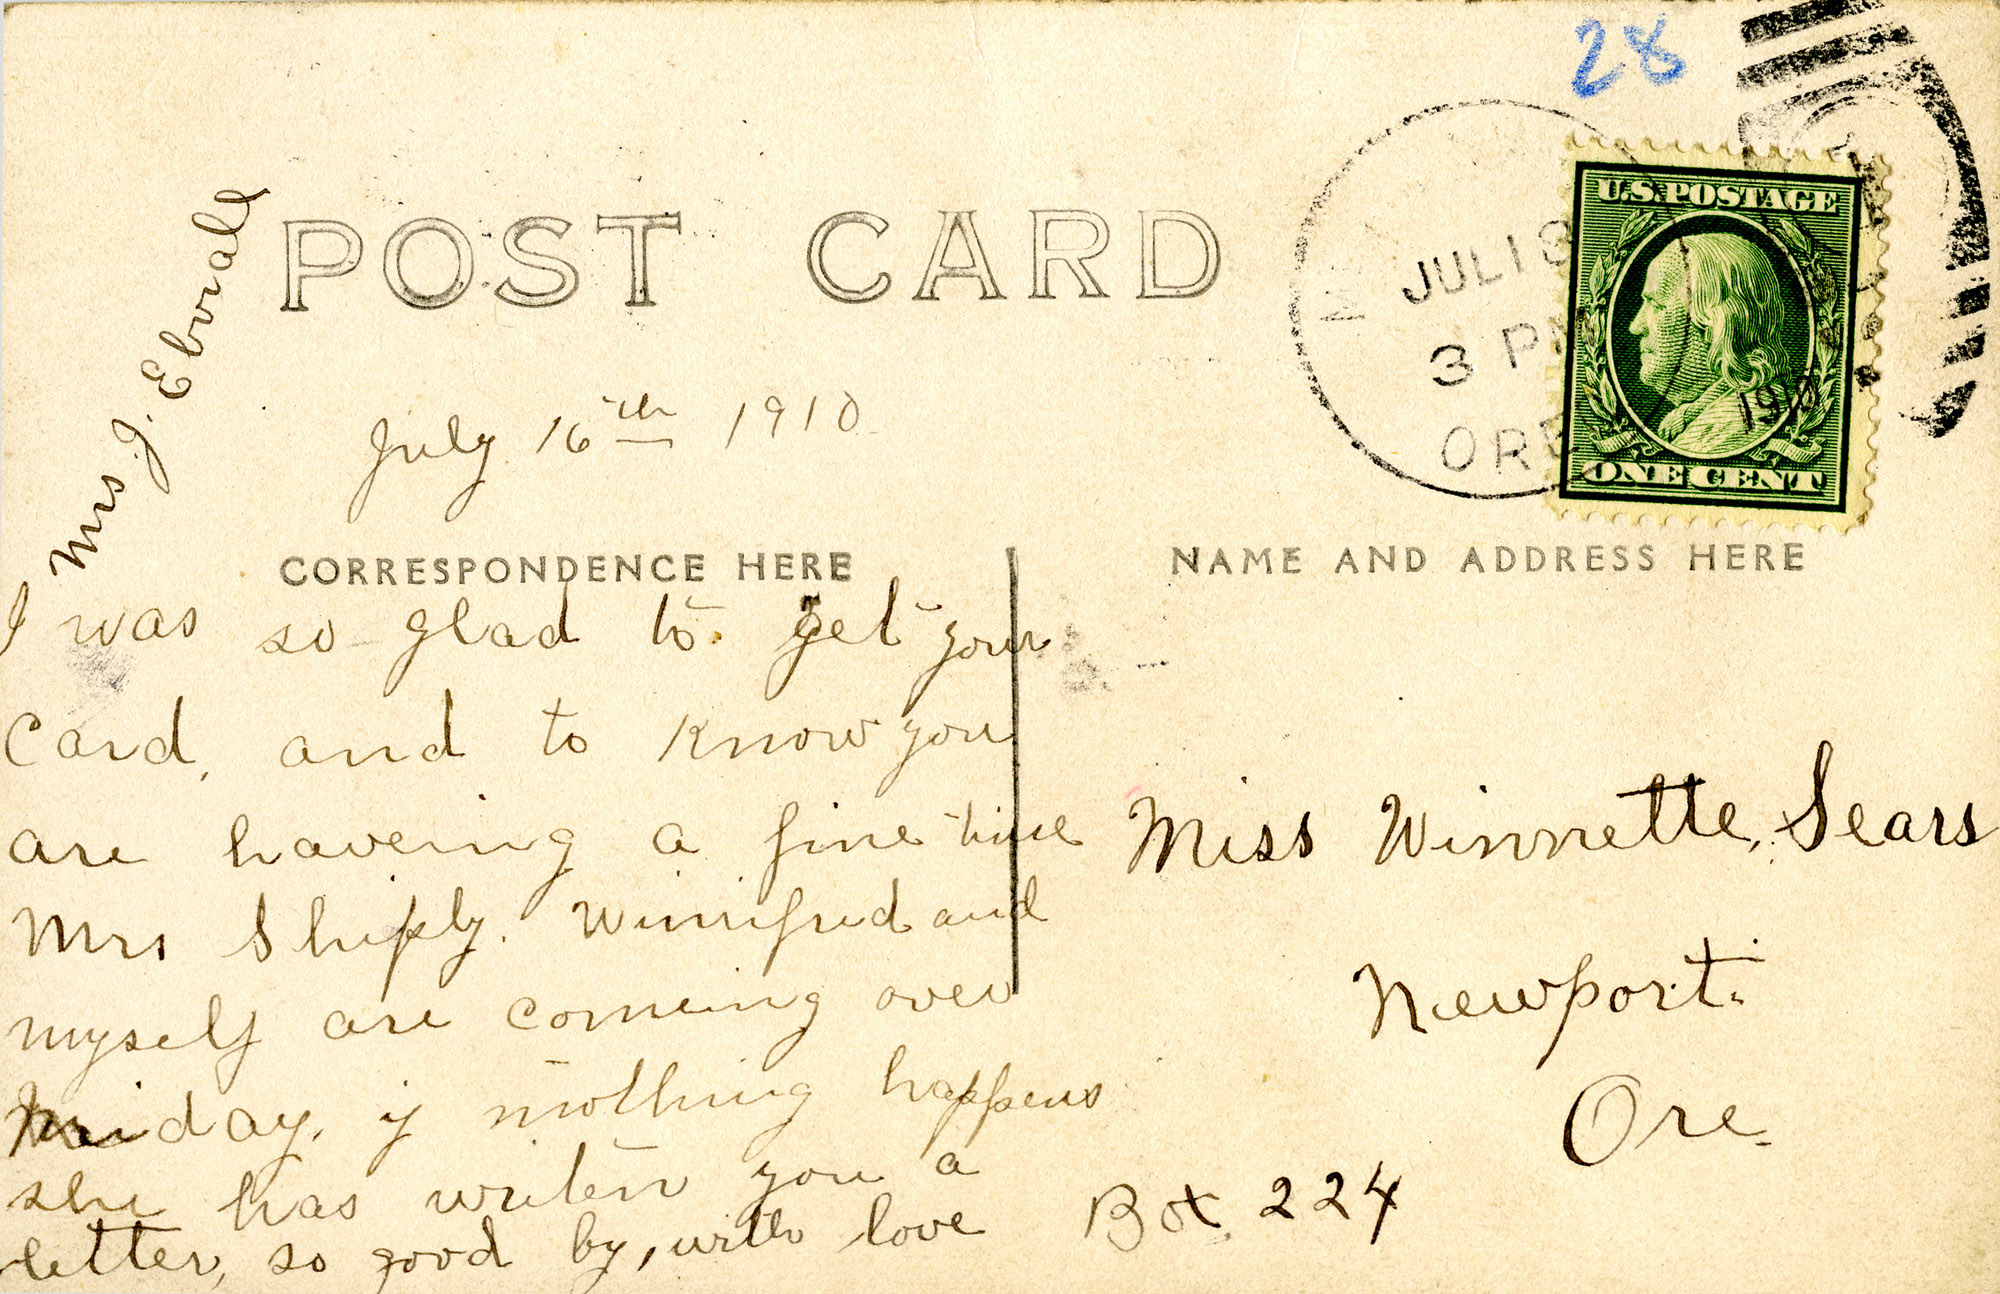 28
POST CARD
U.S. POSTAGE
ONE CENT
JUL 18
3 PM
ORE
1910
July 16th 1910
CORRESPONDENCE HERE
NAME AND ADDRESS HERE
I was so glad to get your
Card, and to know you
are haveing a fine time
Mrs Shiply. Winnifred and
myself are comeing over
Friday, if nothing happens
she has writen you a
letter, so good by, with love
Mrs J. Ebvrall
Miss Winnette, Sears
Newport.
Ore.
Box 224